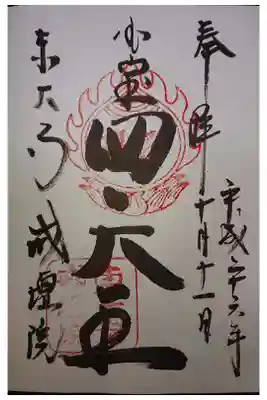 奉拝
平成二六年
十月十一日
国宝
四天王
東大寺 戒壇院